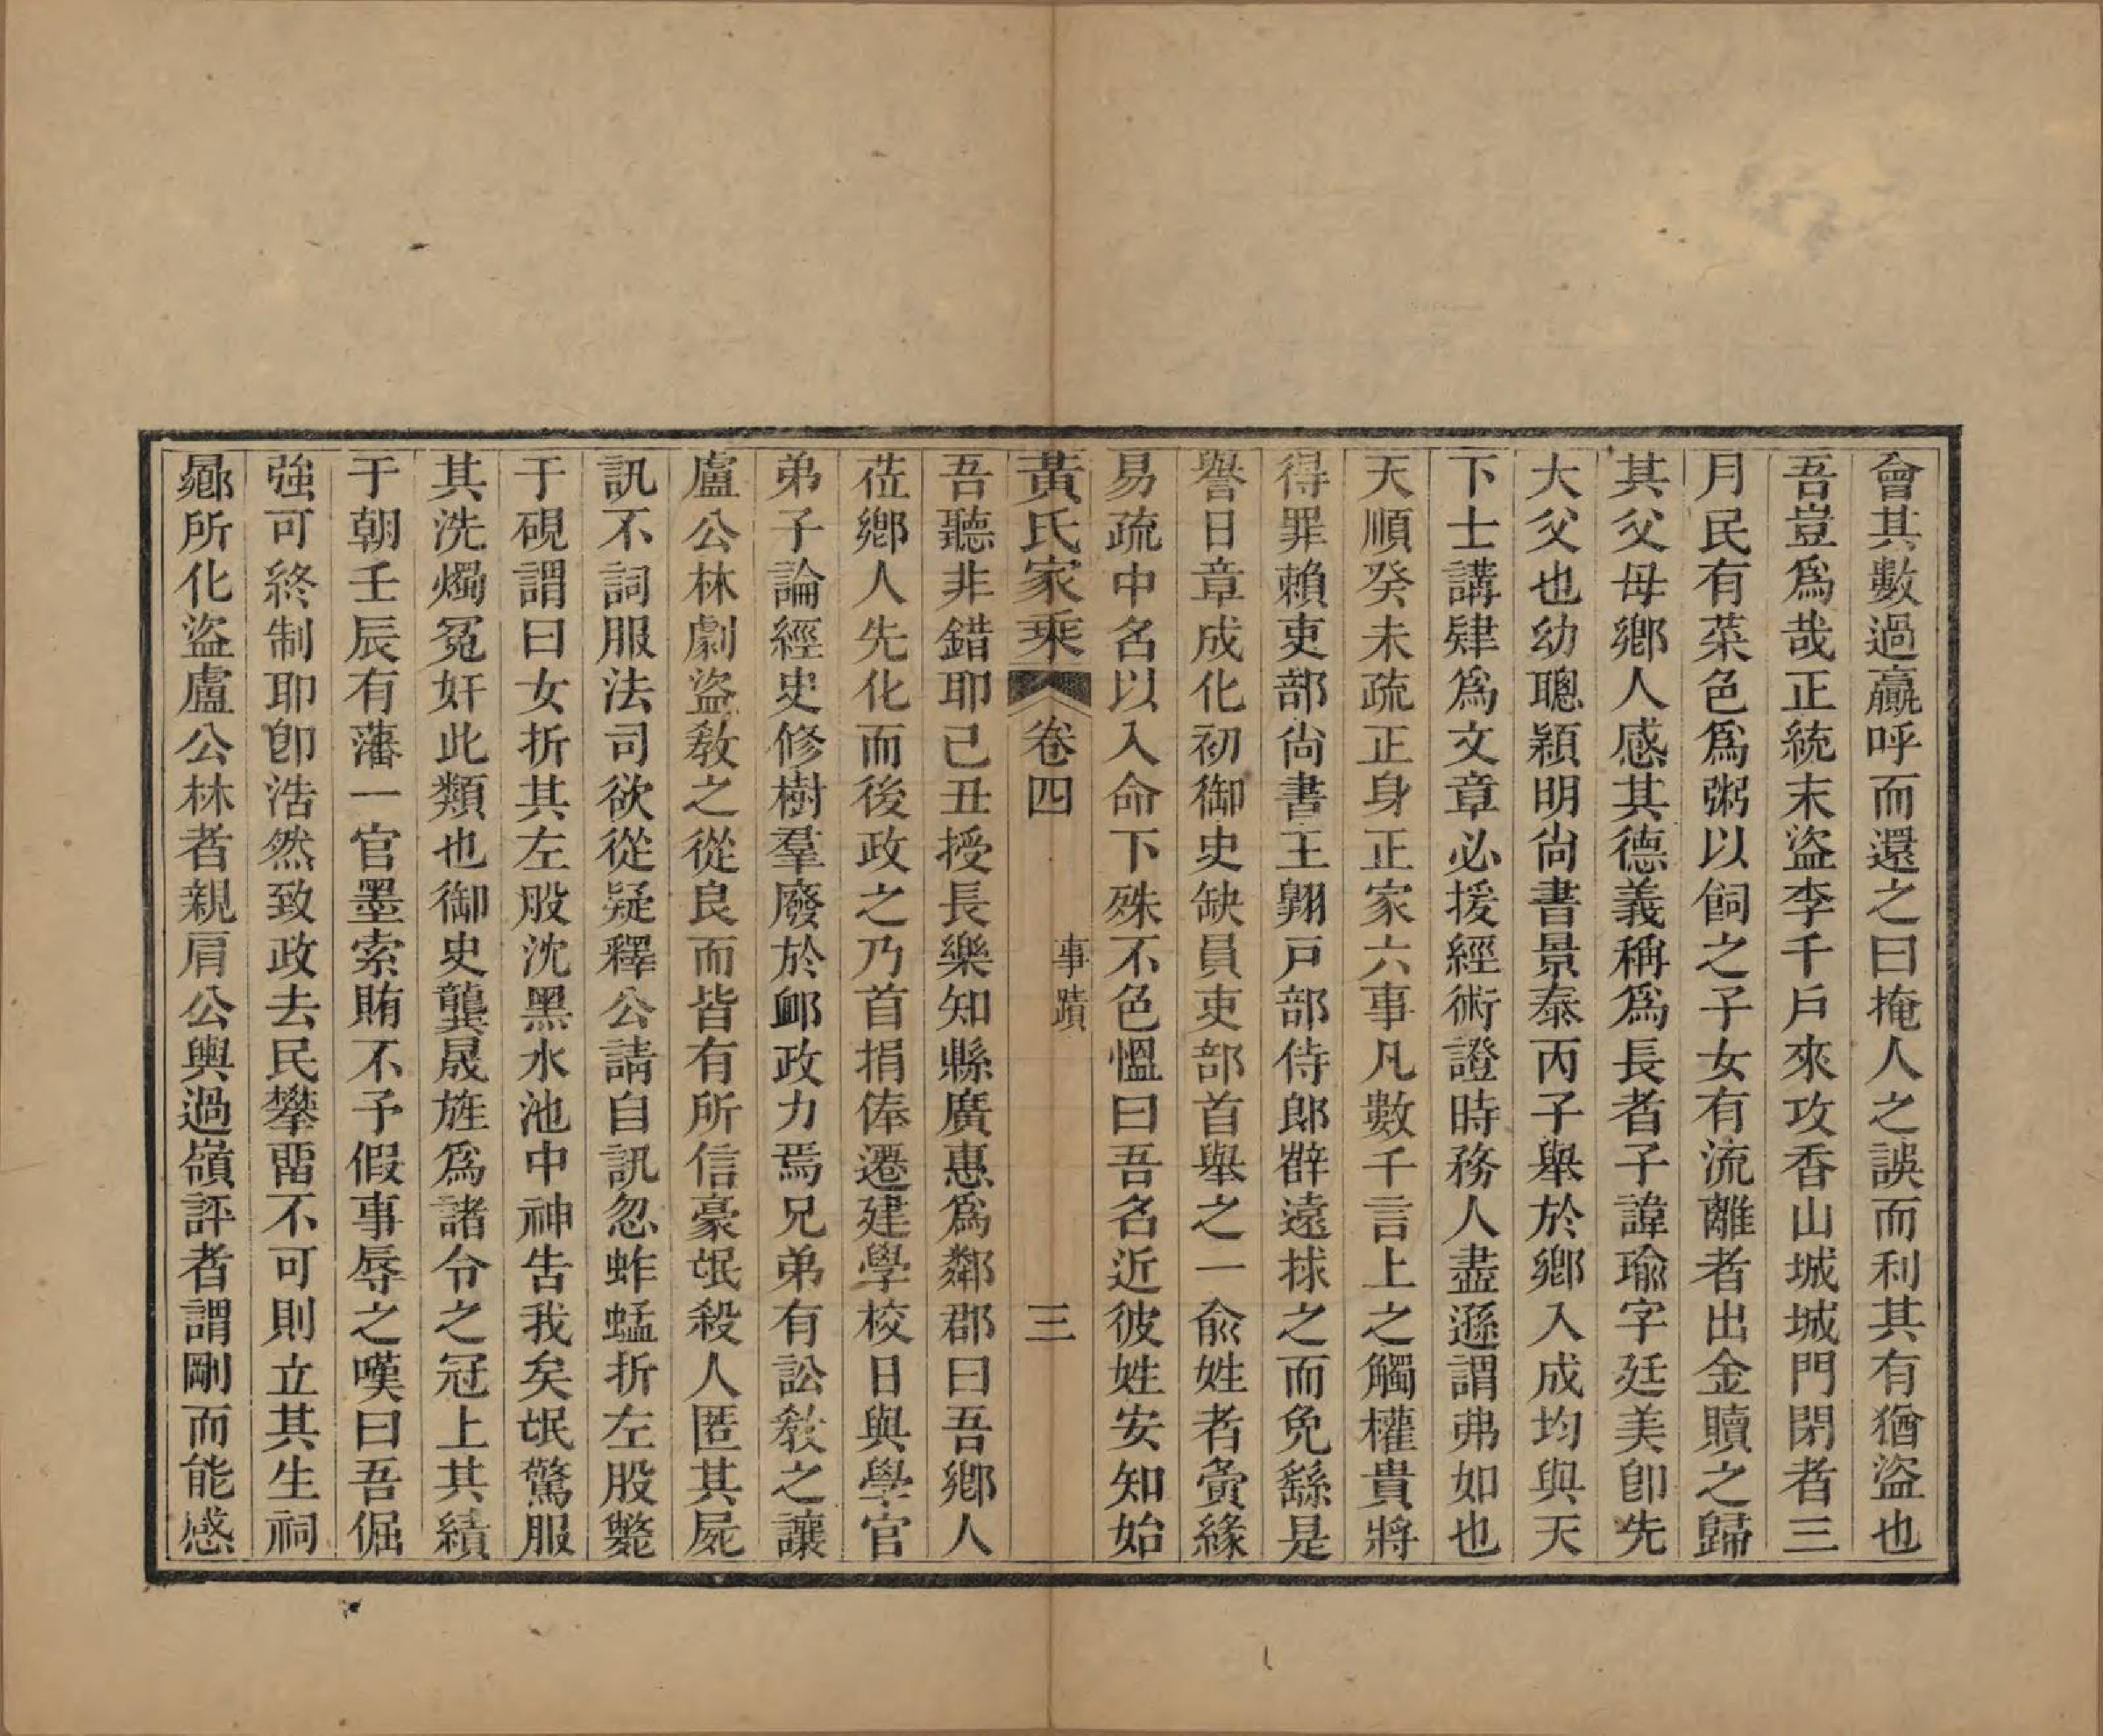 會其數過贏呼而還之曰掩人之誤而利其有猶盜也
吾豈爲哉正統末盜李千戶來攻香山城城門閉者三
月民有菜色爲粥以飼之子女有流離者出金贖之歸
其父母鄉人感其德義稱爲長者子諱瑜字廷美卽先
大父也幼聰穎明尙書景泰丙子舉於鄉入成均與天
下士講肄爲文章必援經術證時務人盡遜謂弗如也
天順癸未疏正身正家六事凡數千言上之觸權貴將
得罪賴吏部尙書王翱戶部侍郎薛遠捄之而免繇是
譽日章成化初御史缺員吏部首舉之一兪姓者夤緣
易疏中名以入命下殊不色慍曰吾名近彼姓安知始
黃氏家乘 卷四 事蹟 三
吾聽非錯耶己丑授長樂知縣廣惠爲鄰郡曰吾鄉人
莅鄉人先化而後政之乃首捐俸遷建學校日與學官
弟子論經史修樹羣廢於邮政力焉兄弟有訟敎之讓
盧公林劇盜敎之從良而皆有所信豪氓殺人匿其屍
訊不詞服法司欲從疑釋公請自訊忽蚱蜢折左股斃
于硯謂曰女折其左股沈黑水池中神吿我矣氓驚服
其洗燭冤奸此類也御史龔晟旌爲諸令之冠上其績
于朝壬辰有藩一官墨索賄不予假事辱之嘆曰吾倔
強可終制耶卽浩然致政去民攀畱不可則立其生祠
曏所化盜盧公林者親肩公輿過嶺評者謂剛而能感